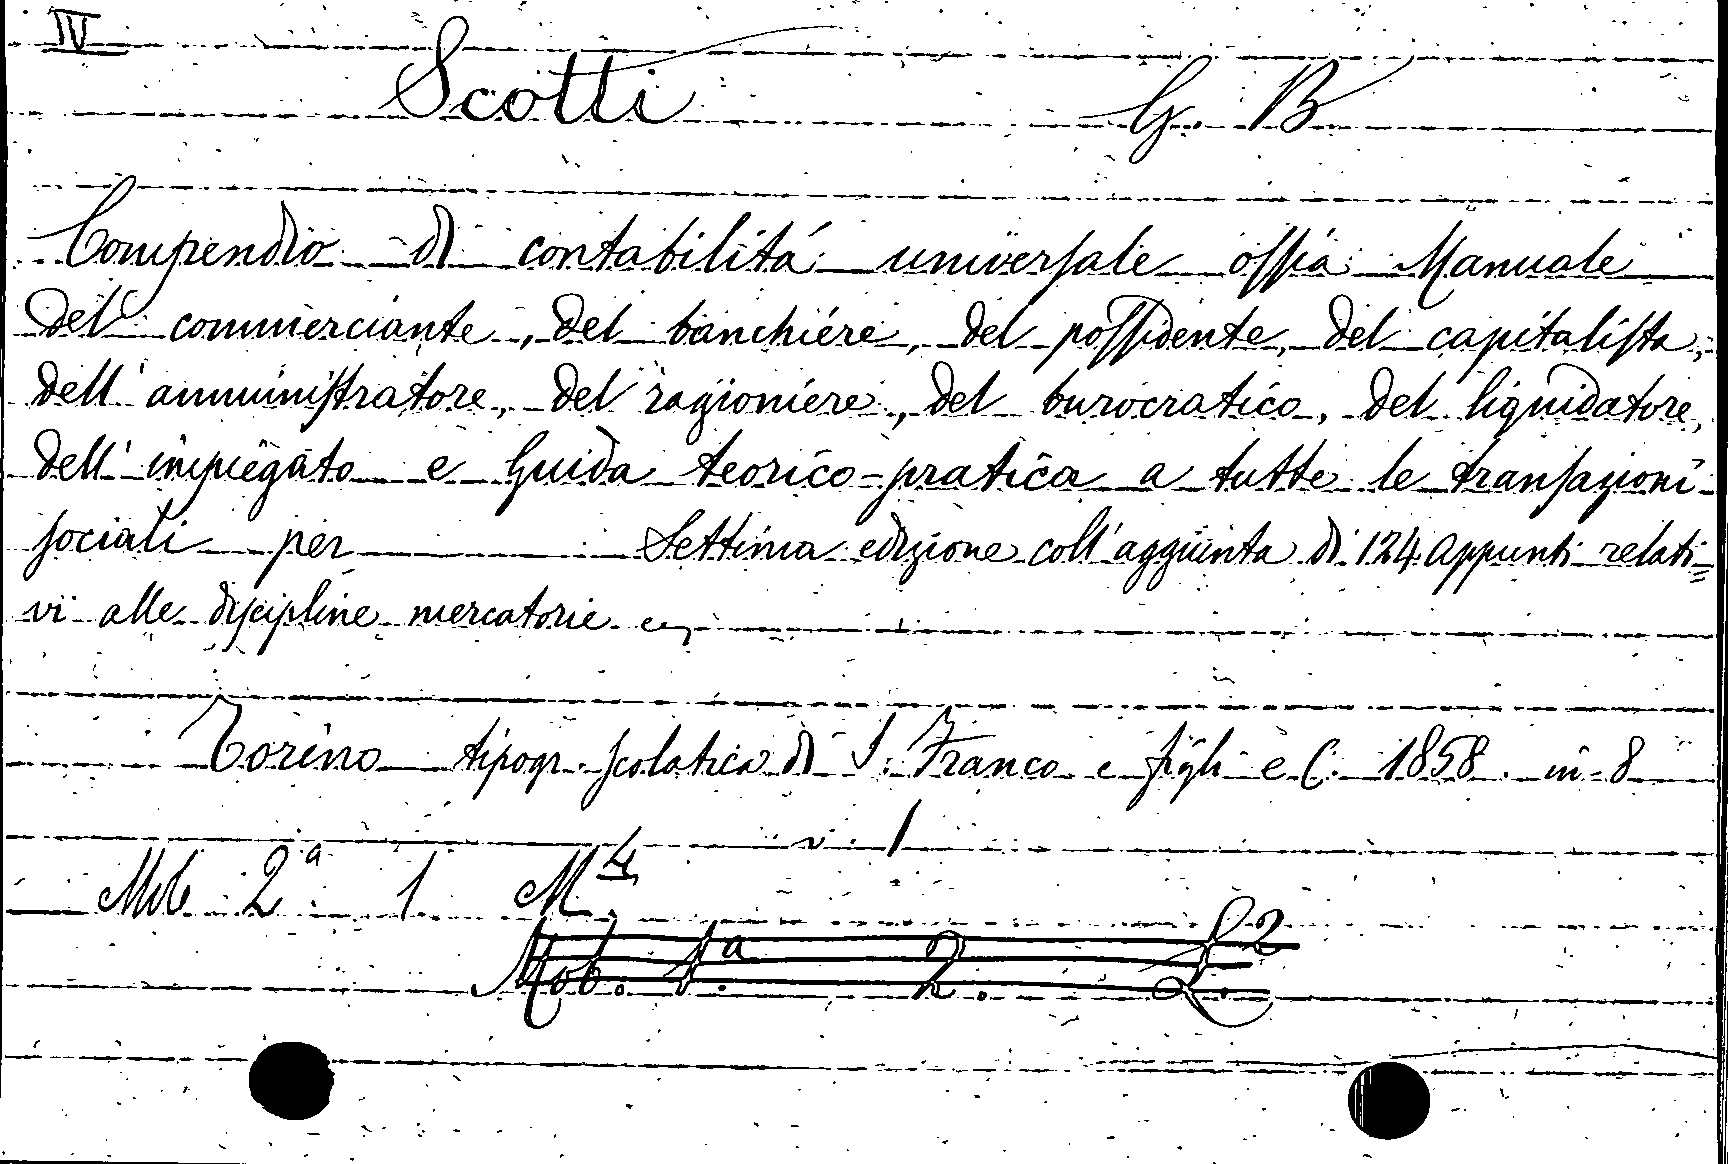 IV
Scotti G. B.
Compendio di contabilitá universale ossia Manuale
del commerciante, del banchiére, del possidente, del capitalista,
dell'amministratore, del ragioniére, del burocratico, del liquidatore,
dell'impiegato e Guida teorico-pratica a tutte le transazioni
sociali per ——— Settima edizione coll'aggiunta di 124 Appunti relati=
vi alle discipline mercatorie
Torino tipogr. scolatica di S. Franco e figli e C. 1858. in 8
v. 1
Mob 2ª 1 M4
Mob. 1.ª 2. L2